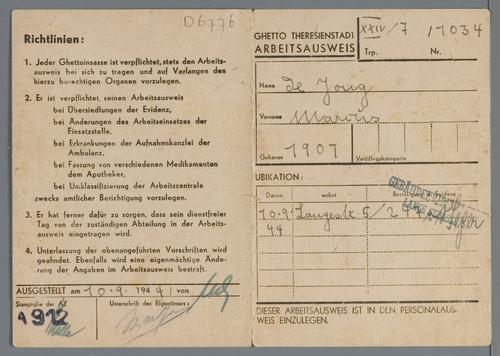 D6776
Richtlinien:
1. Jeder Ghettoinsasse ist verpflichtet, stets den Arbeits-
ausweis bei sich zu tragen und auf Verlangen den
hierzu berechtigten Organen vorzulegen.
2. Er ist verpflichtet, seinen Arbeitsausweis
bei Übersiedlungen der Evidenz,
bei Änderungen des Arbeitseinsatzes der
Einsatzstelle,
bei Erkrankungen der Aufnahmskanzlei der
Ambulanz,
bei Fassung von verschiedenen Medikamenten
dem Apotheker,
bei Umklassifizierung der Arbeitszentrale
zwecks amtlicher Berichtigung vorzulegen.
3. Er hat ferner dafür zu sorgen, dass sein dienstfreier
Tag von der zuständigen Abteilung in der Arbeits-
ausweis eingetragen wird.
4. Unterlassung der obenangeführten Vorschriften wird
geahndet. Ebenfalls wird eine eigenmächtige Ände-
rung der Angaben im Arbeitsausweis bestraft.
AUSGESTELLT am 10.9. 1944 von
Stampiglie der AZ Unterschrift des Eigentümers:
A912
GHETTO THERESIENSTADT
ARBEITSAUSWEIS
XXIV/7 17034
Trp. Nr.
Name de Jong
Vorname Marcus
Geboren 1907 Verpflegskategorie
UBIKATION:
Datum wohnt Bestätigung d. Evidenz
10.9. Langestr. 5/
44
DIESER ARBEITSAUSWEIS IST IN DEN PERSONALAUS-
WEIS EINZULEGEN.